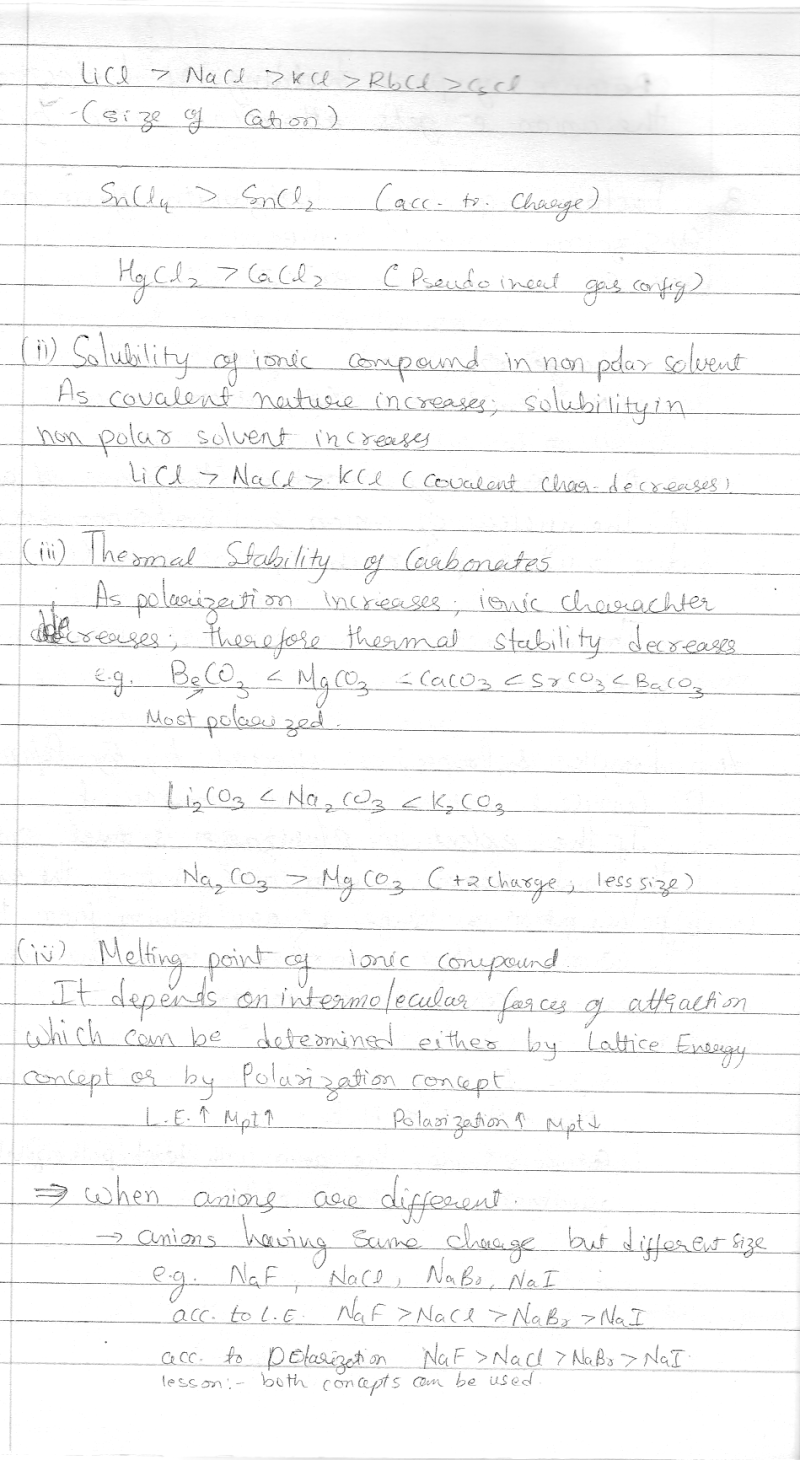 LiCl > NaCl > KCl > RbCl > CsCl
(size of Cation)
SnCl₄ > SnCl₂ (acc. to. Charge)
HgCl₂ > CaCl₂ (Pseudo ineat gas config)
(ii) Solubility of ionic compound in non polar solvent
As covalent nature increases; solubility in
non polar solvent increases
LiCl > NaCl > KCl (Covalent Char. decreases)
(iii) Thermal Stability of Carbonates
As polarization increases; ionic charachter
decreases; therefore thermal stability decreases
e.g. BeCO₃ < MgCO₃ = CaCO₃ < SrCO₃ < BaCO₃
Most polarized.
Li₂CO₃ < Na₂CO₃ < K₂CO₃
Na₂CO₃ > MgCO₃ (+2 charge; less size)
(iv) Melting point of ionic compound
It depends on intermolecular forces of attraction
which can be determined either by Lattice Energy
concept or by Polarization concept
L.E. ↑ Mpt ↑ Polarization ↑ Mpt ↓
⇒ When anions are different.
→ anions having same charge but different size
e.g. NaF, NaCl, NaBr, NaI
acc. to L.E. NaF > NaCl > NaBr > NaI
acc. to polarization NaF > NaCl > NaBr > NaI
lesson:- both concepts can be used.